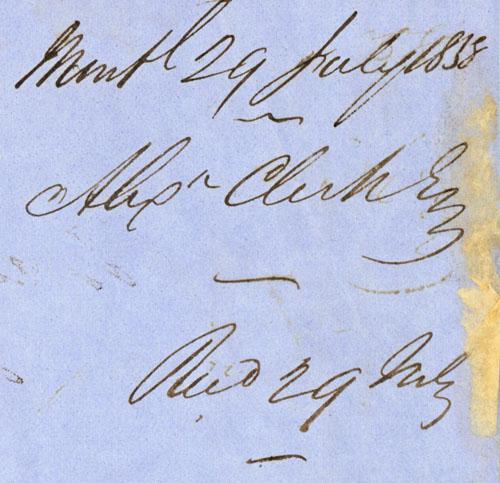 Montl 29 July 1838
Alexr Clerk Esq
Recd 29 July